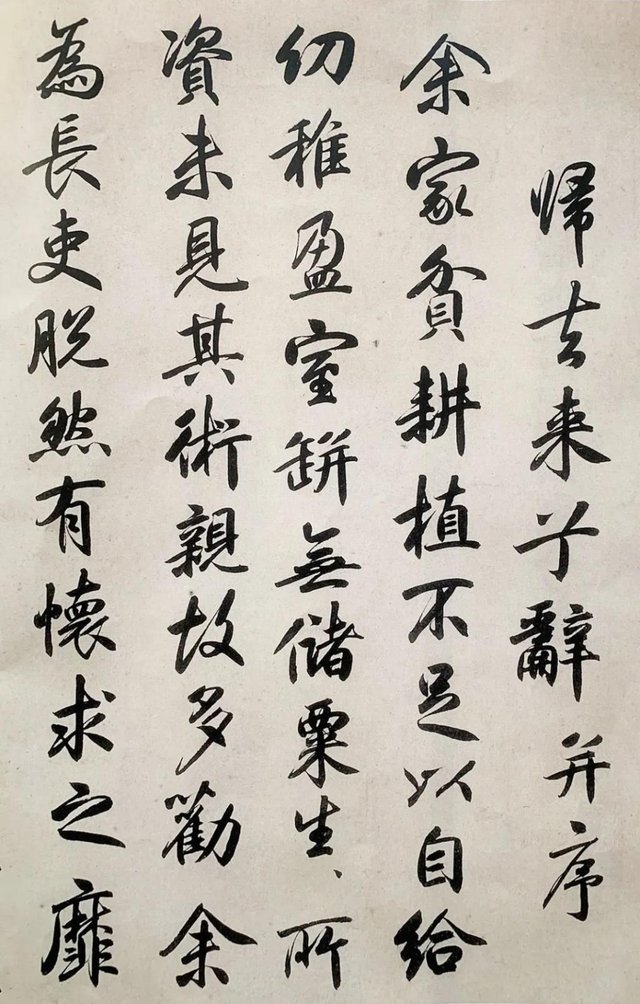 歸去来兮辭并序
余家貧耕植不足以自給
幼稚盈室缾無儲粟生、所
資未見其術親故多勸余
為長吏脫然有懷求之靡